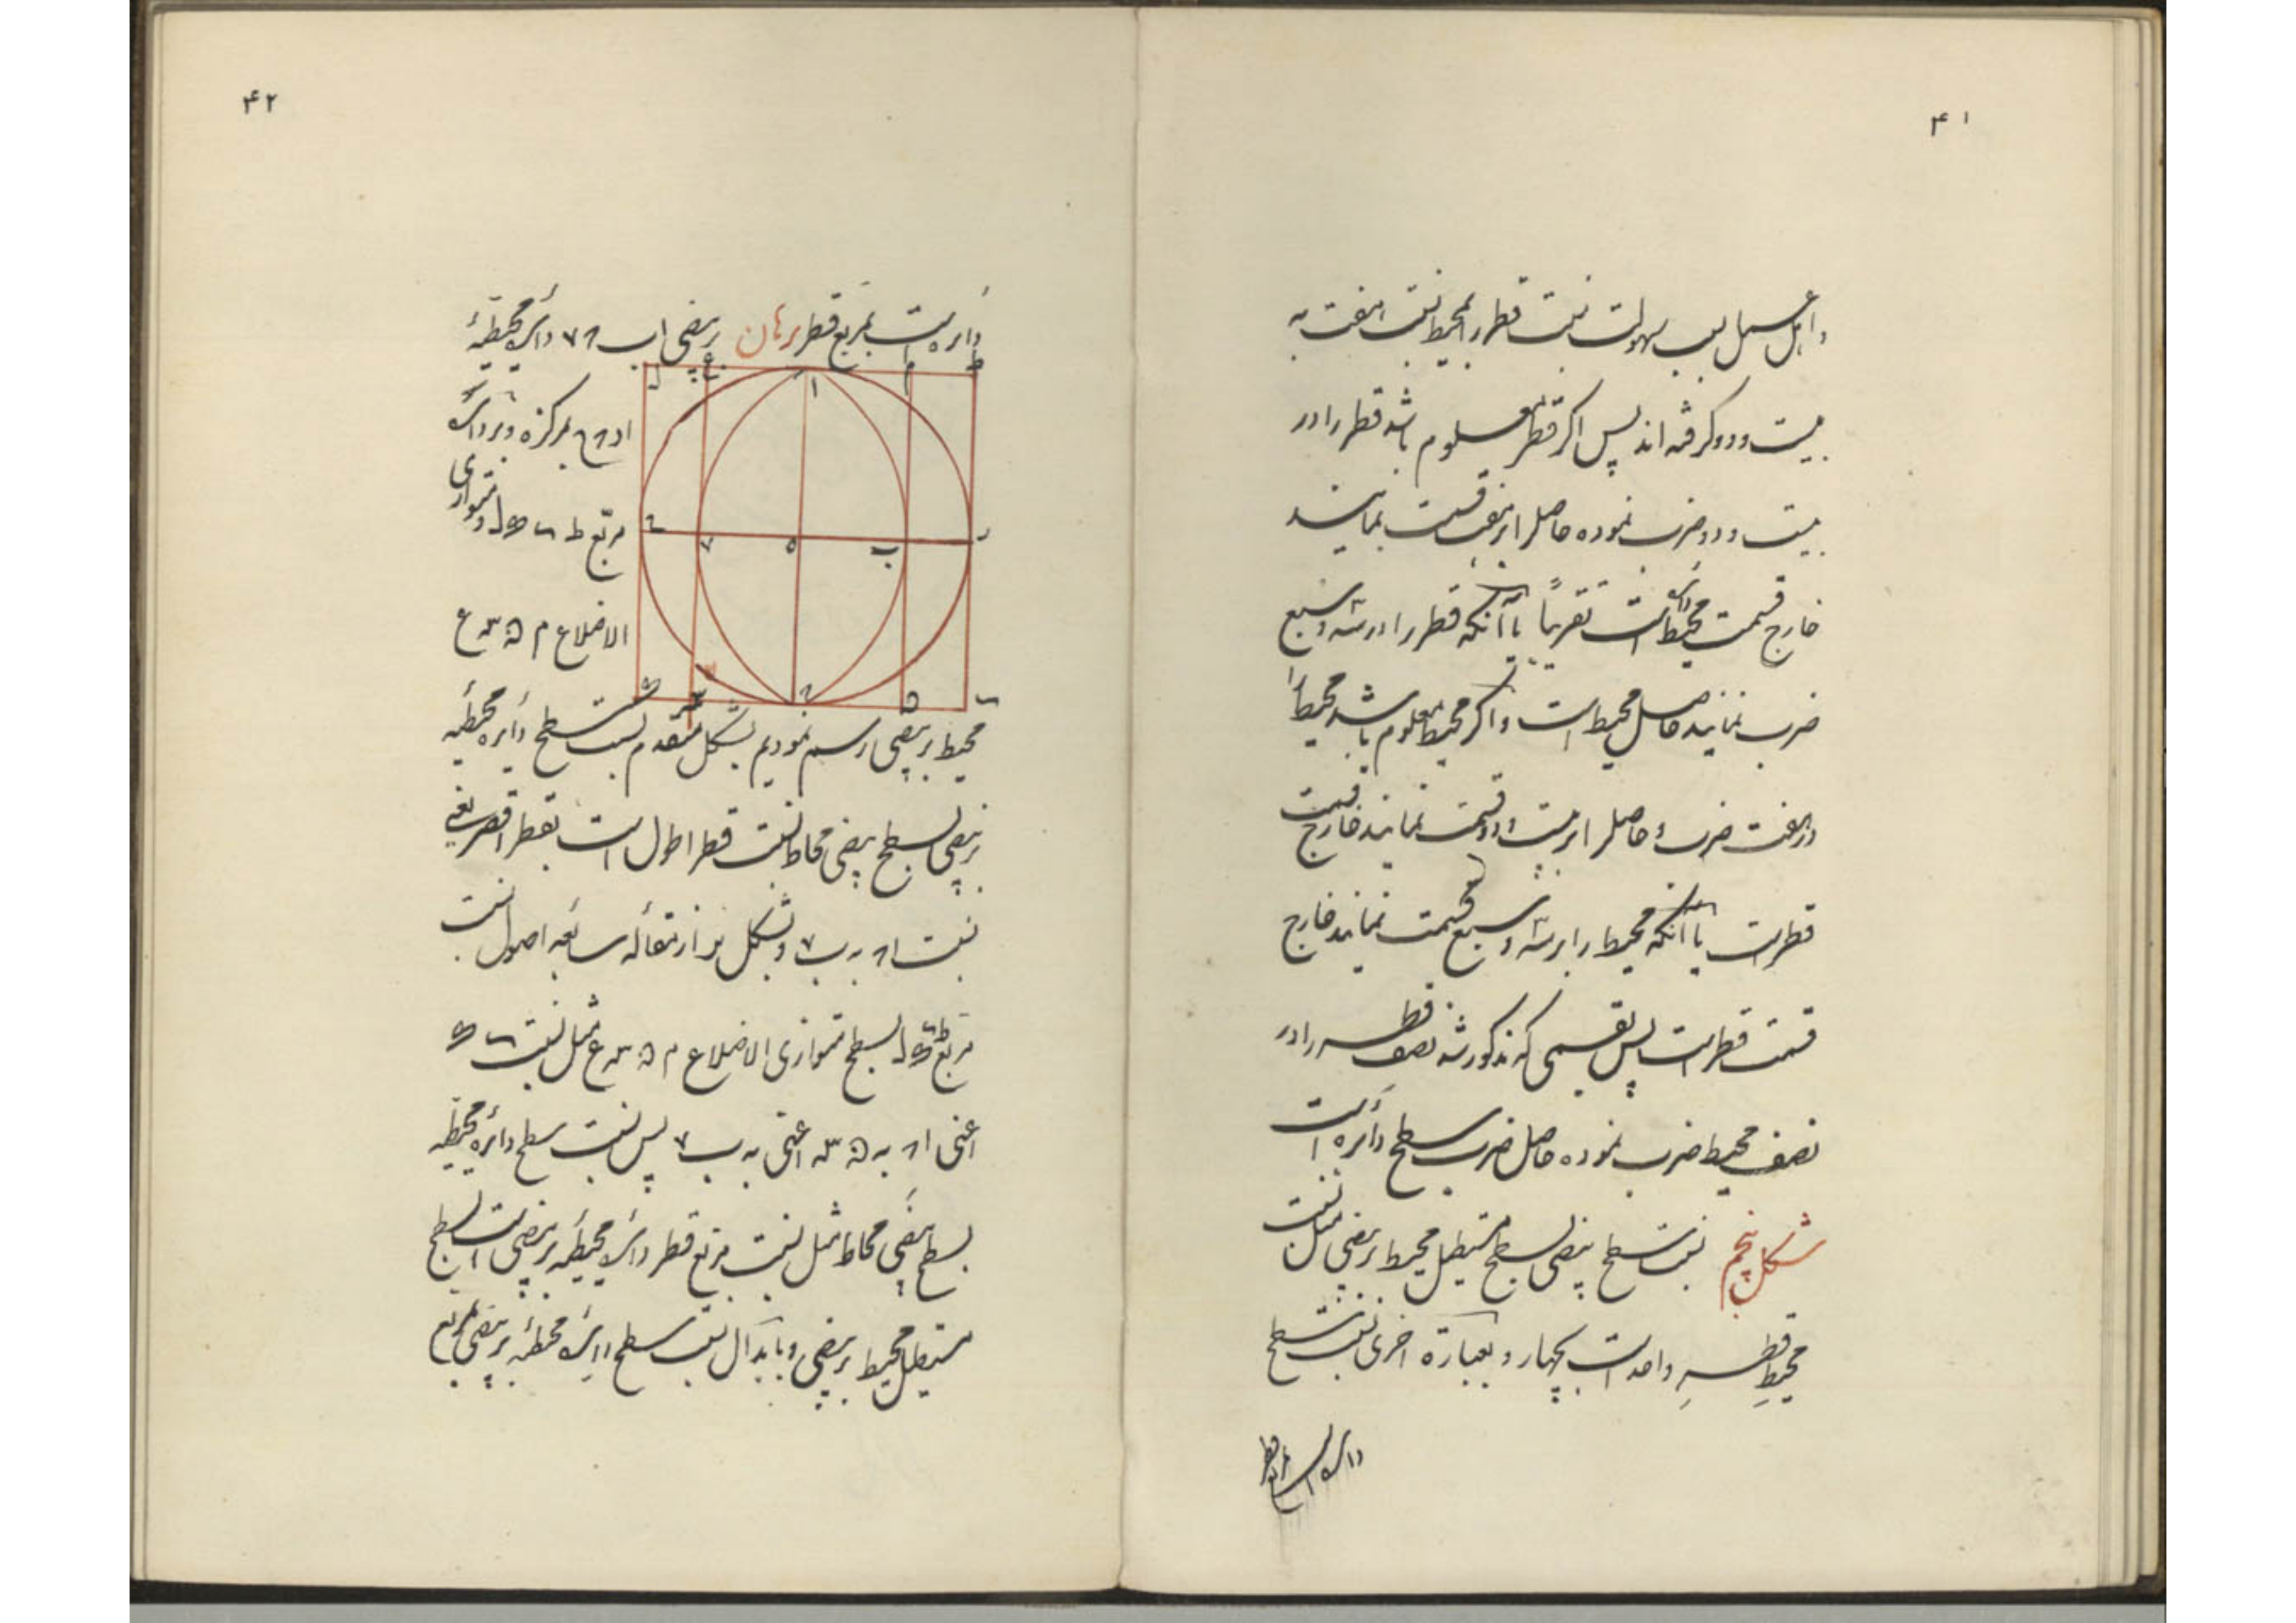 ۴۱
و اهل عمل بسبب سهولت نسبت قطر را بمحیط نسبت هفت به
بیست و دو گرفته اند پس اگر قطر معلوم باشد قطر را در
بیست و دو ضرب نموده حاصل را بر هفت قسمت نمایند
خارج قسمت محیط دایره است تقریباً یا آنکه قطر را در سه و سبع
ضرب نمایند حاصل محیط است و اگر محیط معلوم باشد محیط را
در هفت ضرب و حاصل را بر بیست و دو قسمت نمایند خارج قسمت
قطر است یا آنکه محیط را بر سه و سبع قسمت نمایند خارج
قسمت قطر است پس بقسمی که مذکور شد نصف قطر را در
نصف محیط ضرب نموده حاصل ضرب سطح دایره است
شکل پنجم نسبت سطح بیضی بسطح مستطیل محیط بر بیضی مثل نسبت
محیط قطر واحد است بچهار و بعبارة اخری نسبت سطح
دایره است بمربع قطر
۴۲
دایره است بمربع قطر برهان بر بیضی ا ب ح ۷ دایره محیطهٔ
ط م ا ع ل
ا د ح بمرکز ه و بر دایره
مربع ط ل و متوازی
ر ب ه ۷
الاضلاع م ع
محیط بر بیضی رسم نمودیم بشکل متقدم نسبت سطح دایره محیطه
بر بیضی بسطح بیضی محاط نسبت قطر اطول است بقطر اقصر یعنی
نسبت ا ح به ب ۷ و بشکل از مقاله سابعه اصول نسبت
مربع ط ل بسطح متوازی الاضلاع م ع مثل نسبت
اعنی ا ح به اعنی به ب ۷ پس نسبت سطح دایره محیطه
بسطح بیضی محاط مثل نسبت مربع قطر دایره محیطه بر بیضی است بسطح
مستطیل محیط بر بیضی و بابدال نسبت سطح دایره محیطه بر بیضی بمربع